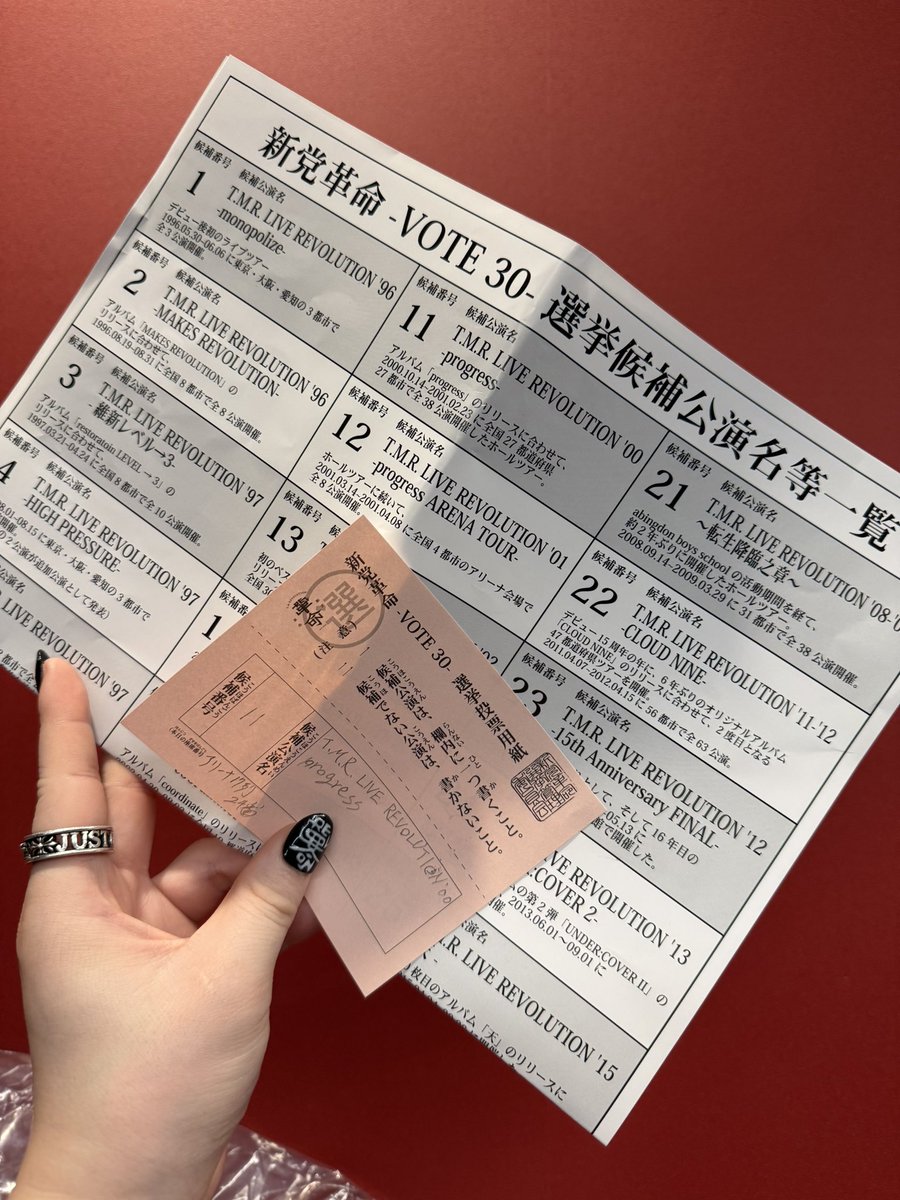 新党革命 -VOTE 30- 選挙候補公演名等一覧
候補番号 候補公演名
1 T.M.R. LIVE REVOLUTION '96
-monopolize-
デビュー後初のライブツアー
1996.05.30-06.06に東京・大阪・愛知の3都市で
全3公演開催。
候補番号 候補公演名
2 T.M.R. LIVE REVOLUTION '96
-MAKES REVOLUTION-
アルバム「MAKES REVOLUTION」の
リリースに合わせて、
1996.08.19-08.31に全国8都市で全8公演開催。
候補番号 候補公演名
3 T.M.R. LIVE REVOLUTION '97
-維新レベル→3-
アルバム「restoratain LEVEL→3」の
リリースに合わせて、
1997.03.21-04.24に全国8都市で全10公演開催。
候補番号 候補公演名
4 T.M.R. LIVE REVOLUTION '97
-HIGH PRESSURE-
8.01-08.15に東京・大阪・愛知の3都市で
の2公演が追加公演として発表）
公演名
LIVE REVOLUTION '97
候補番号 候補公演名
11 T.M.R. LIVE REVOLUTION '00
-progress-
アルバム「progress」のリリースに合わせて、
2000.10.14-2001.02.23に全国27都道府県
27都市で全38公演開催したホールツアー。
候補番号 候補公演名
12 T.M.R. LIVE REVOLUTION '01
-progress ARENA TOUR-
ホールツアーに続いて、
2001.03.14-2001.04.08に全国4都市のアリーナ会場で
全8公演開催。
候補番号
13
初のベス
全国30
候補番号
1
アルバム「coordinate」のリリース
候補番号 候補公演名
21 T.M.R. LIVE REVOLUTION '08-'0
～転生降臨之章～
abingdon boys schoolの活動期間を経て、
約2年ぶりに開催したホールツアー。
2008.09.14-2009.03.29に31都市で全38公演開催。
候補番号 候補公演名
22 T.M.R. LIVE REVOLUTION '11-'12
-CLOUD NINE-
デビュー15周年の年に、6年ぶりのオリジナルアルバム
「CLOUD NINE」のリリースに合わせて、2度目となる
47都道府県ツアーを開催。
2011.04.07-2012.04.15に56都市で全63公演。
候補番号 候補公演名
23 T.M.R. LIVE REVOLUTION '12
-15th Anniversary FINAL-
そして16年目の
-05.13に
館で開催した。
LIVE REVOLUTION '13
:COVER 2-
の第2弾「UNDER:COVER II」の
2013.06.01～09.01に
開催。
公演名
T.M.R. LIVE REVOLUTION '15
枚目のアルバム「天」のリリースに
新党革命 -VOTE 30- 選挙投票用紙
候補公演は、欄内に一つ書くこと。
候補でない公演は、書かないこと。
選
候補公演名
T.M.R. LIVE REVOLUTION '00
progress
候補番号
JUST